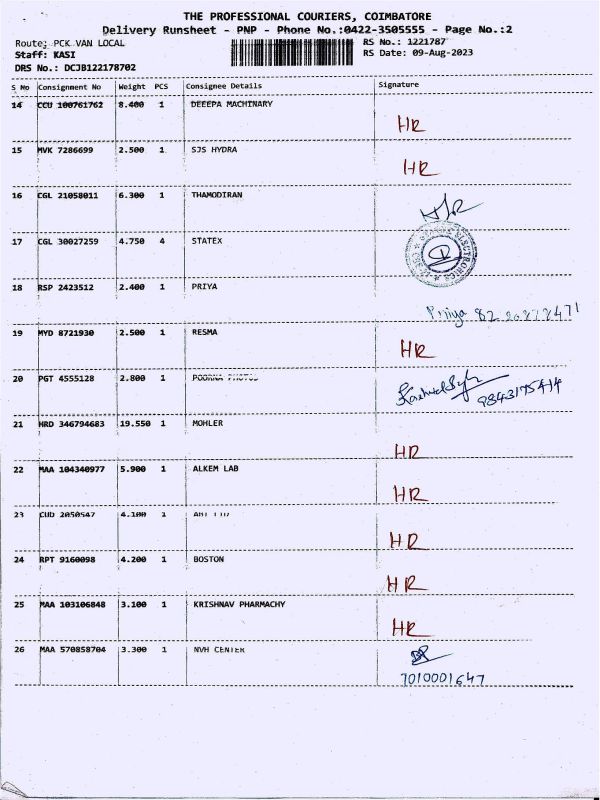 THE PROFESSIONAL COURIERS, COIMBATORE
Delivery Runsheet - PNP - Phone No.:0422-3505555 - Page No.:2
Route: PCK VAN LOCAL RS No.: 1221787
Staff: KASI RS Date: 09-Aug-2023
DRS No.: DCJB122178702
S No Consignment No Weight PCS Consignee Details Signature
14 CCU 100761762 8.400 1 DEEEPA MACHINARY
HR
15 MVK 7286699 2.500 1 SJS HYDRA
HR
16 CGL 21058011 6.300 1 THAMODIRAN
17 CGL 30027259 4.750 4 STATEX
18 RSP 2423512 2.400 1 PRIYA
Priya 82
19 MYD 8721930 2.500 1 RESMA
HR
20 PGT 4555128 2.800 1 POORNA PHOTOS
9843175414
21 HRD 346794683 19.550 1 MOHLER
HR
22 MAA 104340977 5.900 1 ALKEM LAB
HR
23 CUD 2050547 4.100 1
HR
24 RPT 9160098 4.200 1 BOSTON
HR
25 MAA 103106848 3.100 1 KRISHNAV PHARMACHY
HR
26 MAA 570858704 3.300 1 NVH CENTER
7010001647